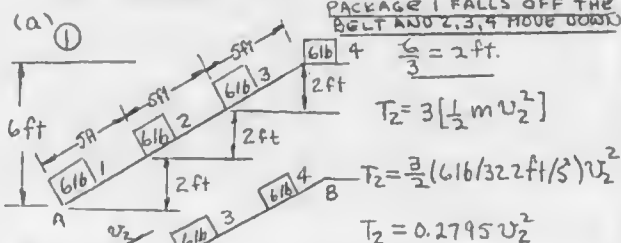 PACKAGE 1 FALLS OFF THE
BELT AND 2, 3, 4 MOVE DOWN
(a) ①
6/3 = 2 ft.
5ft
5ft
5ft
6lb 1
6lb 2
6lb 3
6lb 4
6ft
2ft
2ft
2ft
T₂ = 3[½ m v₂²]
T₂ = 3/2 (6lb/32.2 ft/s²) v₂²
T₂ = 0.2795 v₂²
A
v₂
6lb 3
6lb 4
B